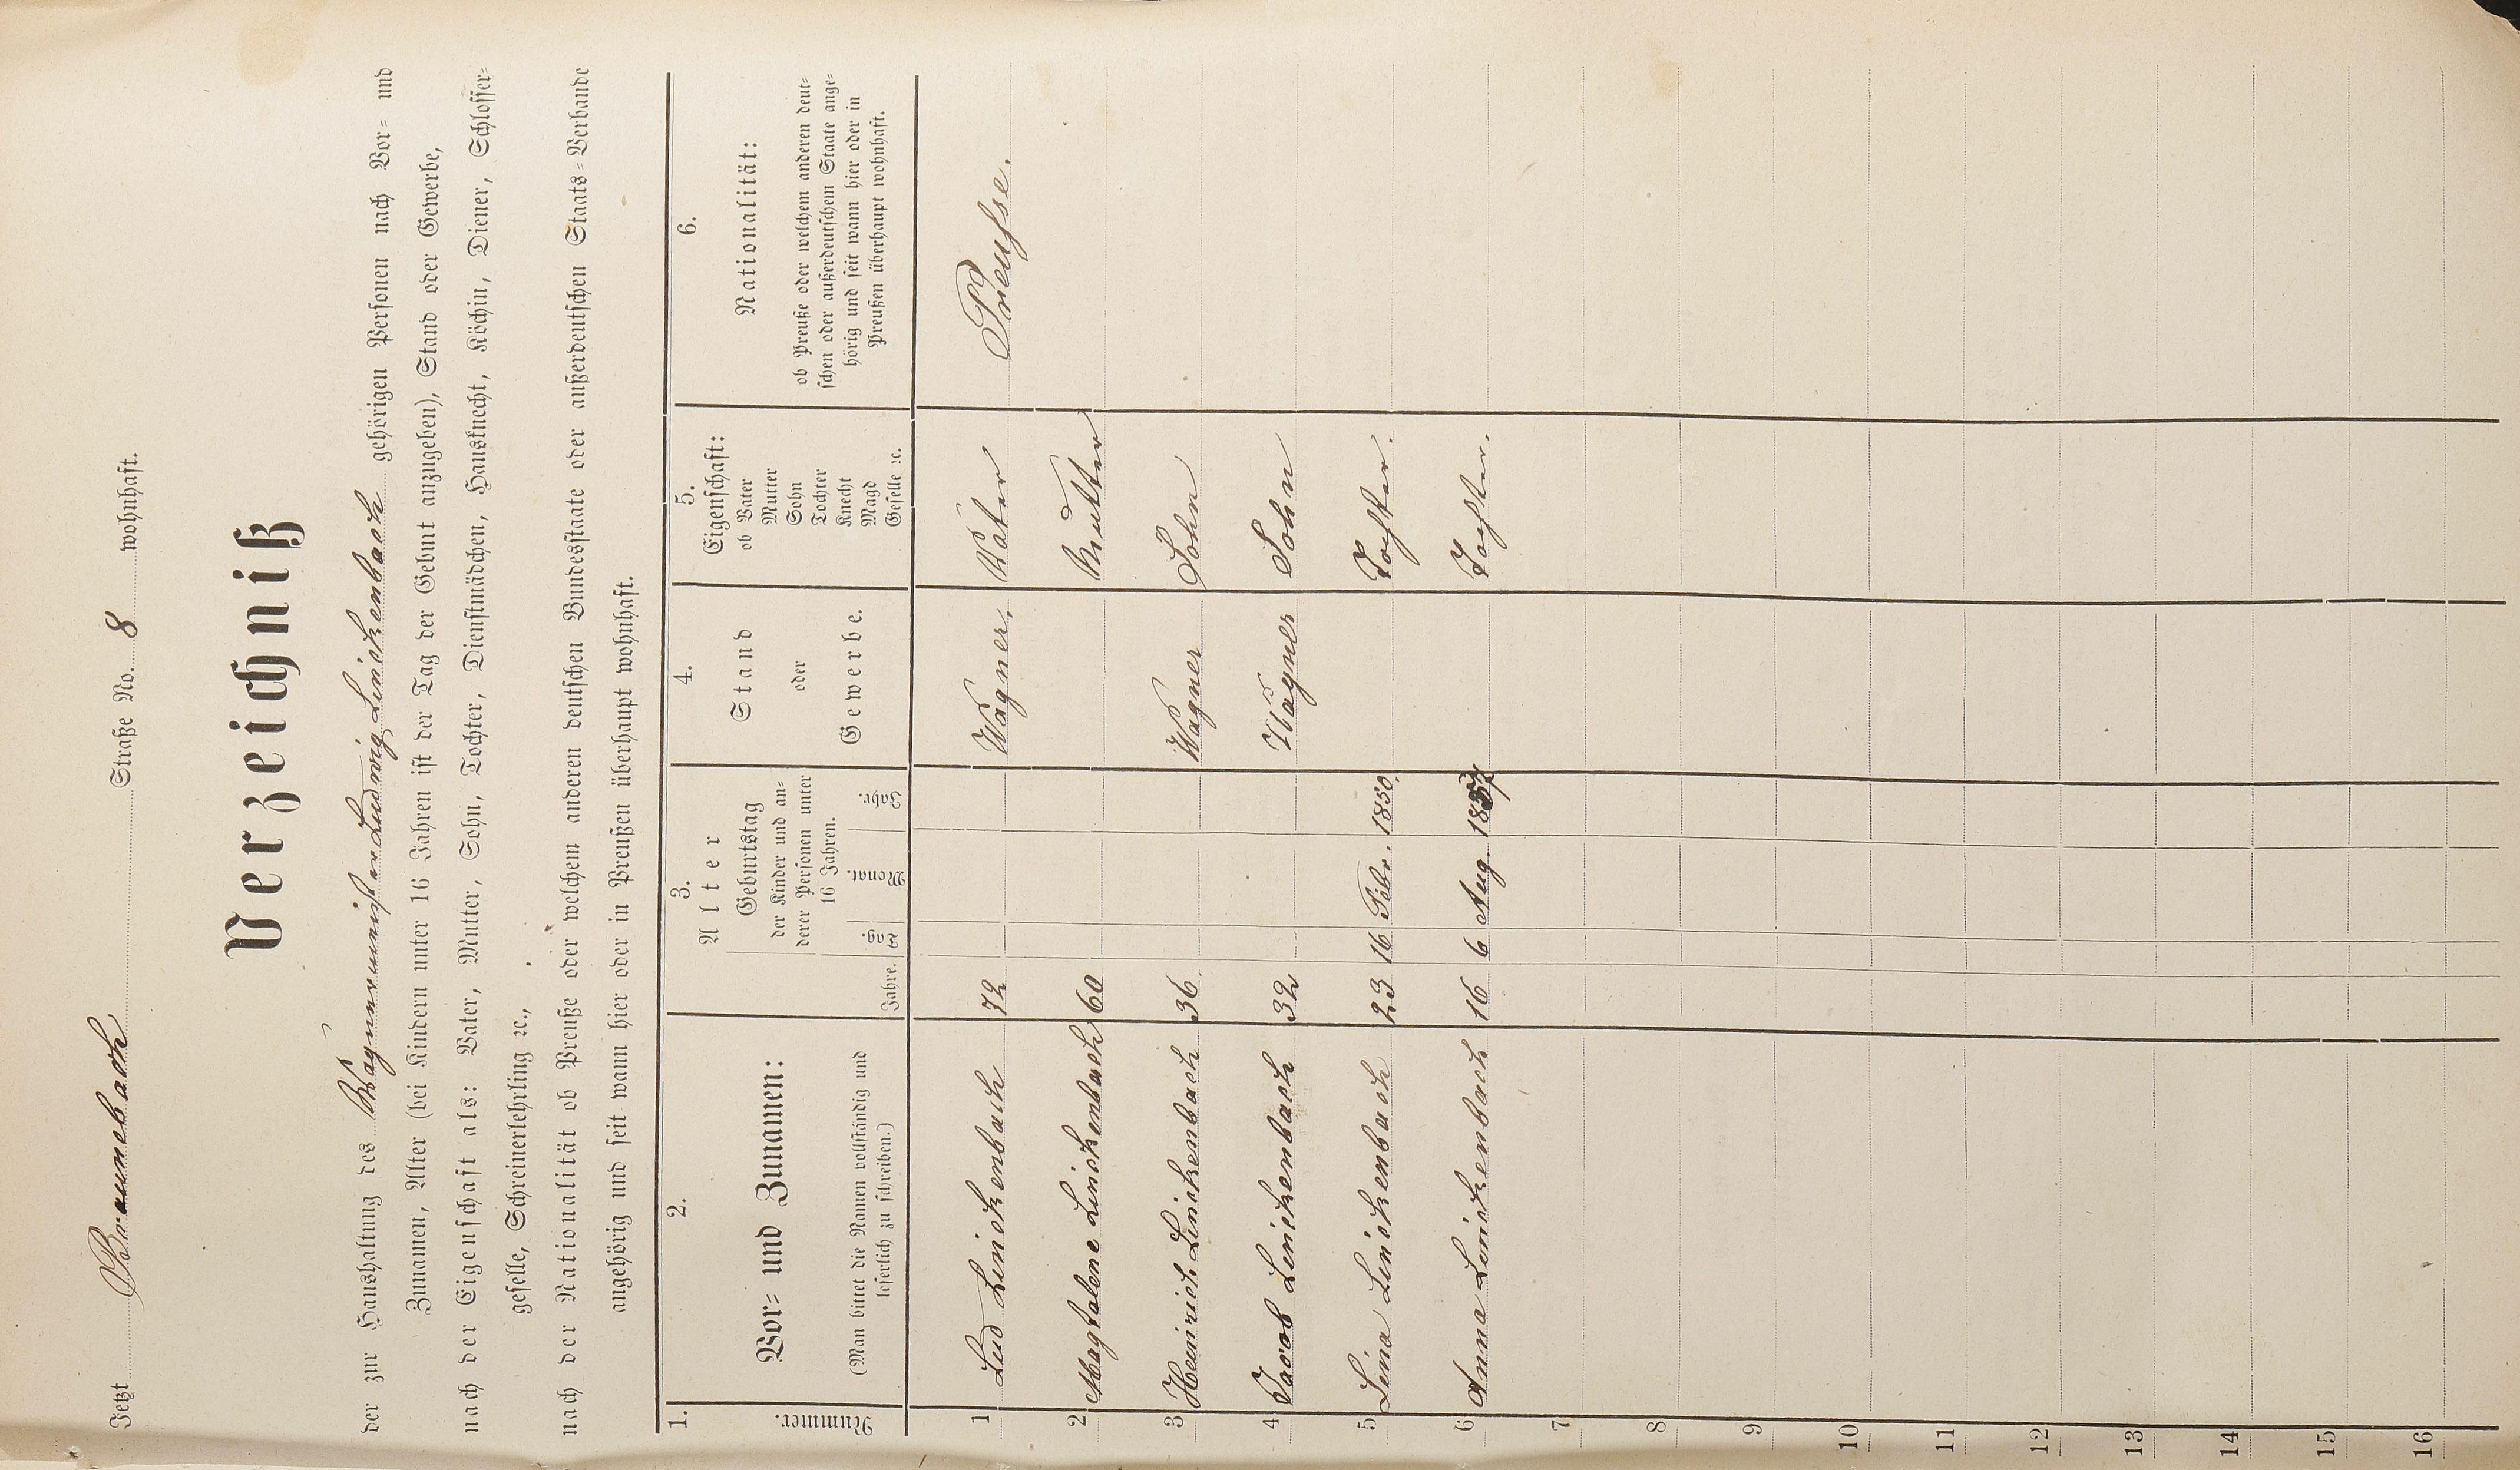 Jetzt Braunebach Straße No. 8 wohnhaft.
Verzeichniß
der zur Haushaltung des Wagnermeister Ludwig Linickenbach gehörigen Personen nach Vor- und
Zunamen, Alter (bei Kindern unter 16 Jahren ist der Tag der Geburt anzugeben), Stand oder Gewerbe,
nach der Eigenschaft als: Vater, Mutter, Sohn, Tochter, Dienstmädchen, Hausknecht, Köchin, Diener, Schlosser-
geselle, Schreinerlehrling ꝛc.,
nach der Nationalität ob Preuße oder welchem anderen deutschen Bundesstaate oder außerdeutschen Staats-Verbande
angehörig und seit wann hier oder in Preußen überhaupt wohnhaft.
1. 2. 3. 4. 5. 6.
Nummer. Vor- und Zunamen: Alter Stand oder Gewerbe. Eigenschaft: Nationalität:
(Man bittet die Namen vollständig und
leserlich zu schreiben.)
Jahre.
Geburtstag
der Kinder und an-
derer Personen unter
16 Jahren.
Tag. Monat. Jahr.
ob Vater
Mutter
Sohn
Tochter
Knecht
Magd
Geselle ꝛc.
ob Preuße oder welchem anderen deut-
schen oder außerdeutschen Staate ange-
hörig und seit wann hier oder in
Preußen überhaupt wohnhaft.
1 Lud Linickenbach 72 Wagner. Vater Preusse.
2 Magtalene Linickenbach 60 Mutter
3 Heinrich Linickenbach 36 Wagner Sohn
4 Jacob Linickenbach 32 Wagner Sohn
5 Lina Linickenbach 23 16 Febr. 1850. Tochter.
6 Anna Linickenbach 16 6 Aug. 1857 Tochter.
7
8
9
10
11
12
13
14
15
16